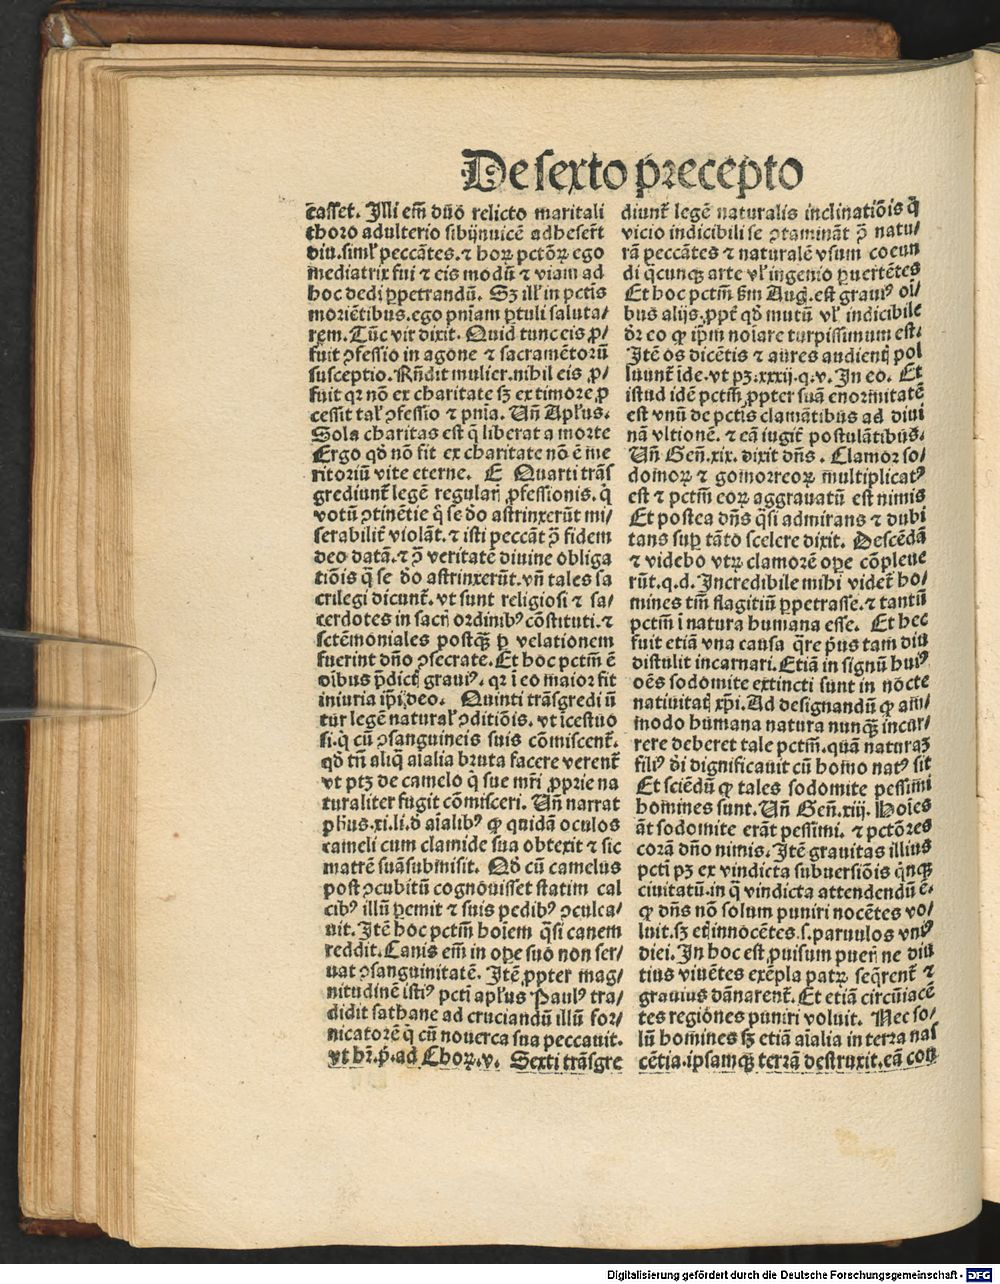 De sexto p̄cepto
c̄asset. Illi em̄ duo relicto maritali
thoro adulterio sibijnuicē adheser̄t
diu.siml̓ peccātes.⁊ hoꝝ pctōꝝ ego
mediatrix fui ⁊ eis modū ⁊ viam ad
hoc dedi ꝑpetrandū. Sꝫ ill̓ in pctīs
moriētibus.ego pniam ꝑtuli saluta/
rem.Tūc vir dixit. Quid tunc eis ꝓ/
fuit ꝯfessio in agone ⁊ sacramētorū
susceptio.Rn̄dit mulier.nihil eis ꝓ/
fuit qꝛ nō ex charitate sꝫ ex timore ꝓ
cessit tal̓ ꝯfessio ⁊ pnia. Un̄ Apl̓us.
Sola charitas est q̄ liberat a morte
Ergo qd̓ nō fit ex charitate nō ē me
ritoriū vite eterne. E Quarti trās
grediunt̄ legē regularꝭ ꝓfessionis. q̄
votū ꝯtinētie q̄ se deo astrinxerūt mi/
serabilit̄ violāt.⁊ isti peccāt ꝯ̄ fidem
deo datā.⁊ ꝯ̄ veritatē diuine obliga
tiōis q̄ se deo astrinxerūt.vn̄ tales sa
crilegi dicunt̄. vt sunt religiosi ⁊ sa/
cerdotes in sacrꝭ ordinibꝰ cōstituti.⁊
sctēmoniales postqꝫ̄ ꝑ velationem
fuerint dn̄o ꝯsecrate.Et hoc pctm̄ ē
oībus p̄dictꝭ grauiꝰ. qꝛ ī eo maior fit
iniuria ip̄i deo. Quinti trāsgrediū
tur legē natural̓ ꝯditiōis. vt īcestuo
si.q̄ cū ꝯsanguineis suis cōmiscent̄.
qd̓ tn̄ aliq̄ aīalia bruta facere verent̄
vt ptꝫ de camelo q̄ sue mr̄i ꝓprie na
turaliter fugit cōmisceri. Un̄ narrat
ph̄us.xi.li.d̓ aīalibꝰ ꝙ quidā oculos
cameli cum clamide sua obtexit ⁊ sic
matrē suā submisit. Qd̓ cū camelus
post ꝯcubitū cognouisset statim cal
cibꝰ illū ꝑemit ⁊ suis pedibꝰ ꝯculca/
uit.Itē hoc pctm̄ hoīem q̄si canem
reddit.Canis em̄ in oꝑe suo non ser/
uat ꝯsanguinitatē. Itē ꝓpter mag/
nitudinē istiꝰ pcti apl̓us Paulꝰ tra/
didit sathane ad cruciandū illū for/
nicatorē q̄ cū nouerca sua peccauit.
vt hr̄.p̄.ad Choꝝ.v. Sexti trāsgre
diunt̄ legē naturalis inclinatiōis q̄
vicio indicibili se ꝯtamināt ꝯ̄ natu/
rā peccātes ⁊ naturalē vsum coeun
di q̄cunqꝫ arte vl̓ ingenio ꝑuertētes
Et hoc pctm̄ ẜm Aug̓.est grauiꝰ oī/
bus alijs.ꝓpt̄ qd̓ mutū vl̓ indicibile
dr̄ eo ꝙ ip̄m noīare turpissimum est.
Itē os dicētis ⁊ aures audientꝭ pol
luunt̄ īde.vt pꝫ.xxxij.q.v. In eo. Et
istud idē pctm̄ ꝓpter suā enormitatē
est vnū de pctis clamātibus ad diui
nā vltionē. ⁊ eā iugit̄ postulātibus.
Un̄ Gen̄.xix. dixit dn̄s . Clamor so/
domoꝝ ⁊ gomorreoꝝ multiplicatꝰ
est ⁊ pctm̄ eoꝝ aggrauatū est nimis
Et postea dn̄s q̄si admirans ⁊ dubi
tans suꝑ tāto scelere dixit. Descēdā
⁊ videbo vtꝝ clamorē oꝑe cōpleue
rūt.q.d. Incredibile mihi videt̄ ho/
mines tm̄ flagitiū ꝑpetrasse.⁊ tantū
pctm̄ ī natura humana esse. Et hec
fuit etiā vna causa q̄re p̄us tam diu
distulit incarnari.Etiā in signū huiꝰ
oēs sodomite extincti sunt in nocte
natiuitatꝭ xp̄i. Ad designandū ꝙ am̄/
modo humana natura nunqꝫ̄ incur/
rere deberet tale pctm̄.quā naturaꝫ
filiꝰ di dignificauit cū homo natꝰ sit
Et sciēdū ꝙ tales sodomite pessimi
homines sunt. Un̄ Gen̄.xiij. Hoīes
āt sodomite erāt pessimi. ⁊ pctōres
corā dn̄o nimis. Itē grauitas illius
pcti pꝫ ex vindicta subuersiōis q̄nqꝫ
ciuitatū.in q̄ vindicta attendendū ē.
ꝙ dn̄s nō solum puniri nocētes vo/
luit.sꝫ etꝭ innocētes.s.paruulos vniꝰ
diei. In hoc est ꝓuisum puerꝭ ne diu
tius viuētes exēpla patꝝ seq̄rent̄ ⁊
grauius dānarent̄. Et etiā circūiacē
tes regiones puniri voluit. Nec so/
lū homines sꝫ etiā aīalia in terra nas
cētia.ipsamqꝫ terrā destruxit.eā con
Digitalisierung gefördert durch die Deutsche Forschungsgemeinschaft - DFG